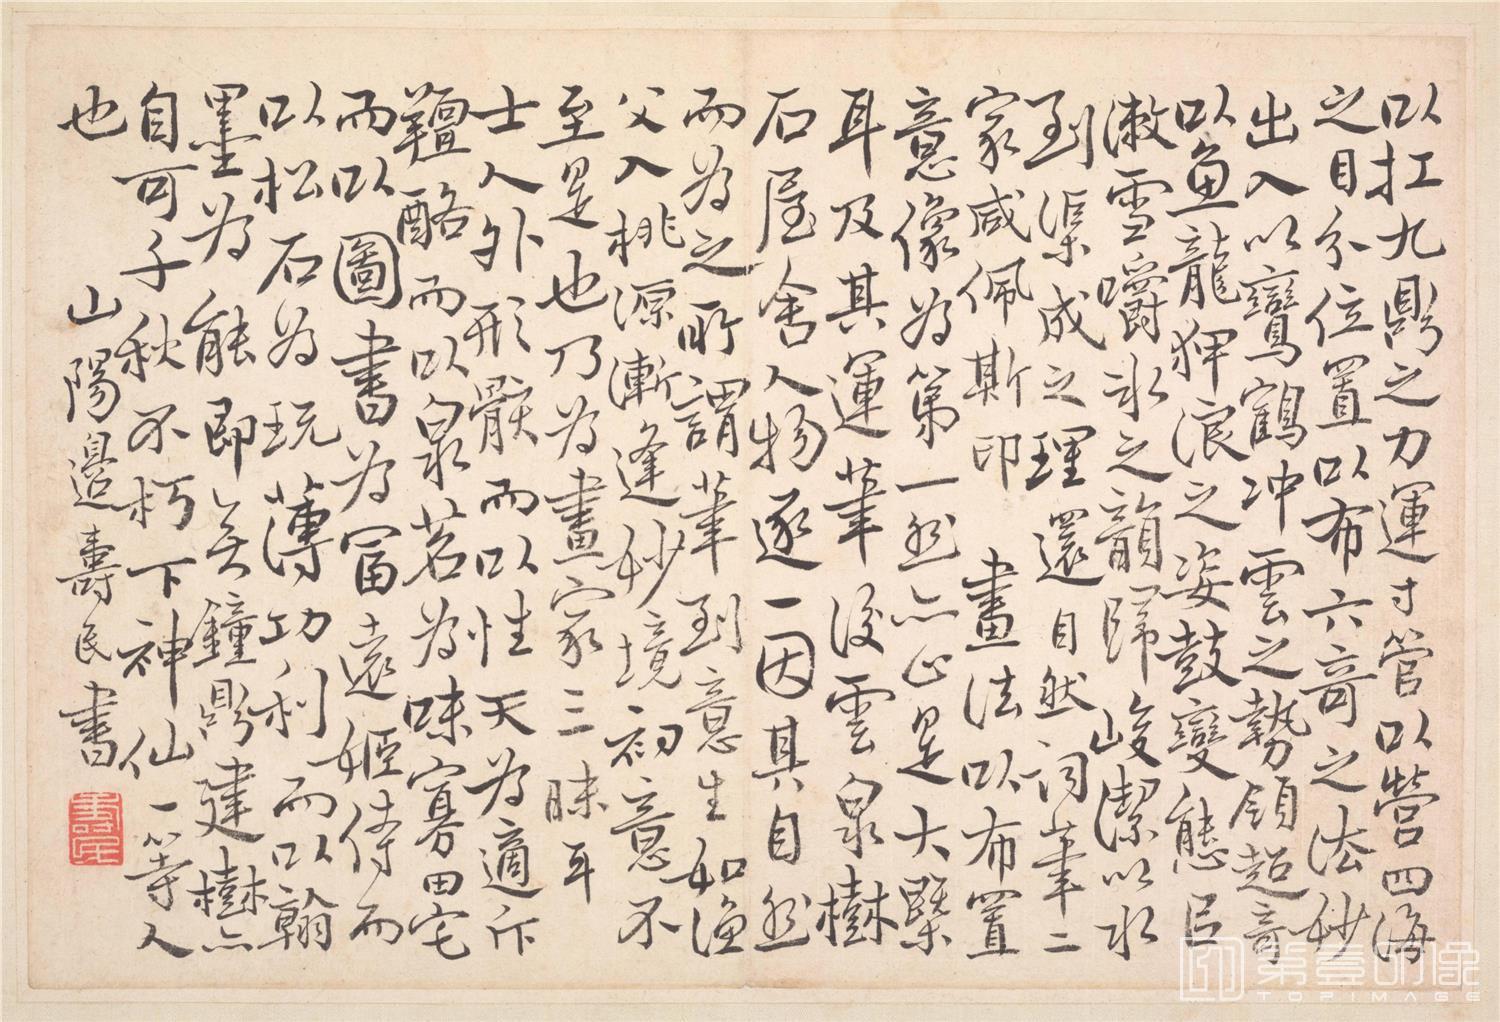 以扛九鼎之力運寸管以營四海
之目分位置以布六奇之法妙
出入以鸞鶴冲雲之勢領超奇
以魚龍狎浪之姿鼓變態臣
漱雪嚼冰之韻歸峻潔以水
到渠成之理還自然詞筆二
家咸佩斯印 畫法以布置
意像為第一然亦止是大槩
耳及其運筆後雲泉樹
石屋舍人物逐一因其自然
而為之所謂筆到意生如漁
父入桃源漸逢妙境初意不
至是也乃為畫家三昧耳
士人外形骸而以性天為適斥
羶酪而以泉茗為味寡田宅
而以圖書為富遠姬侍而
以松石為玩薄功利而以翰
墨為能即無鐘鼎建樹亦
自可千秋不朽下神仙一等人
也
山陽邉壽民書
壽民
第壹印像
TOPIMAGE